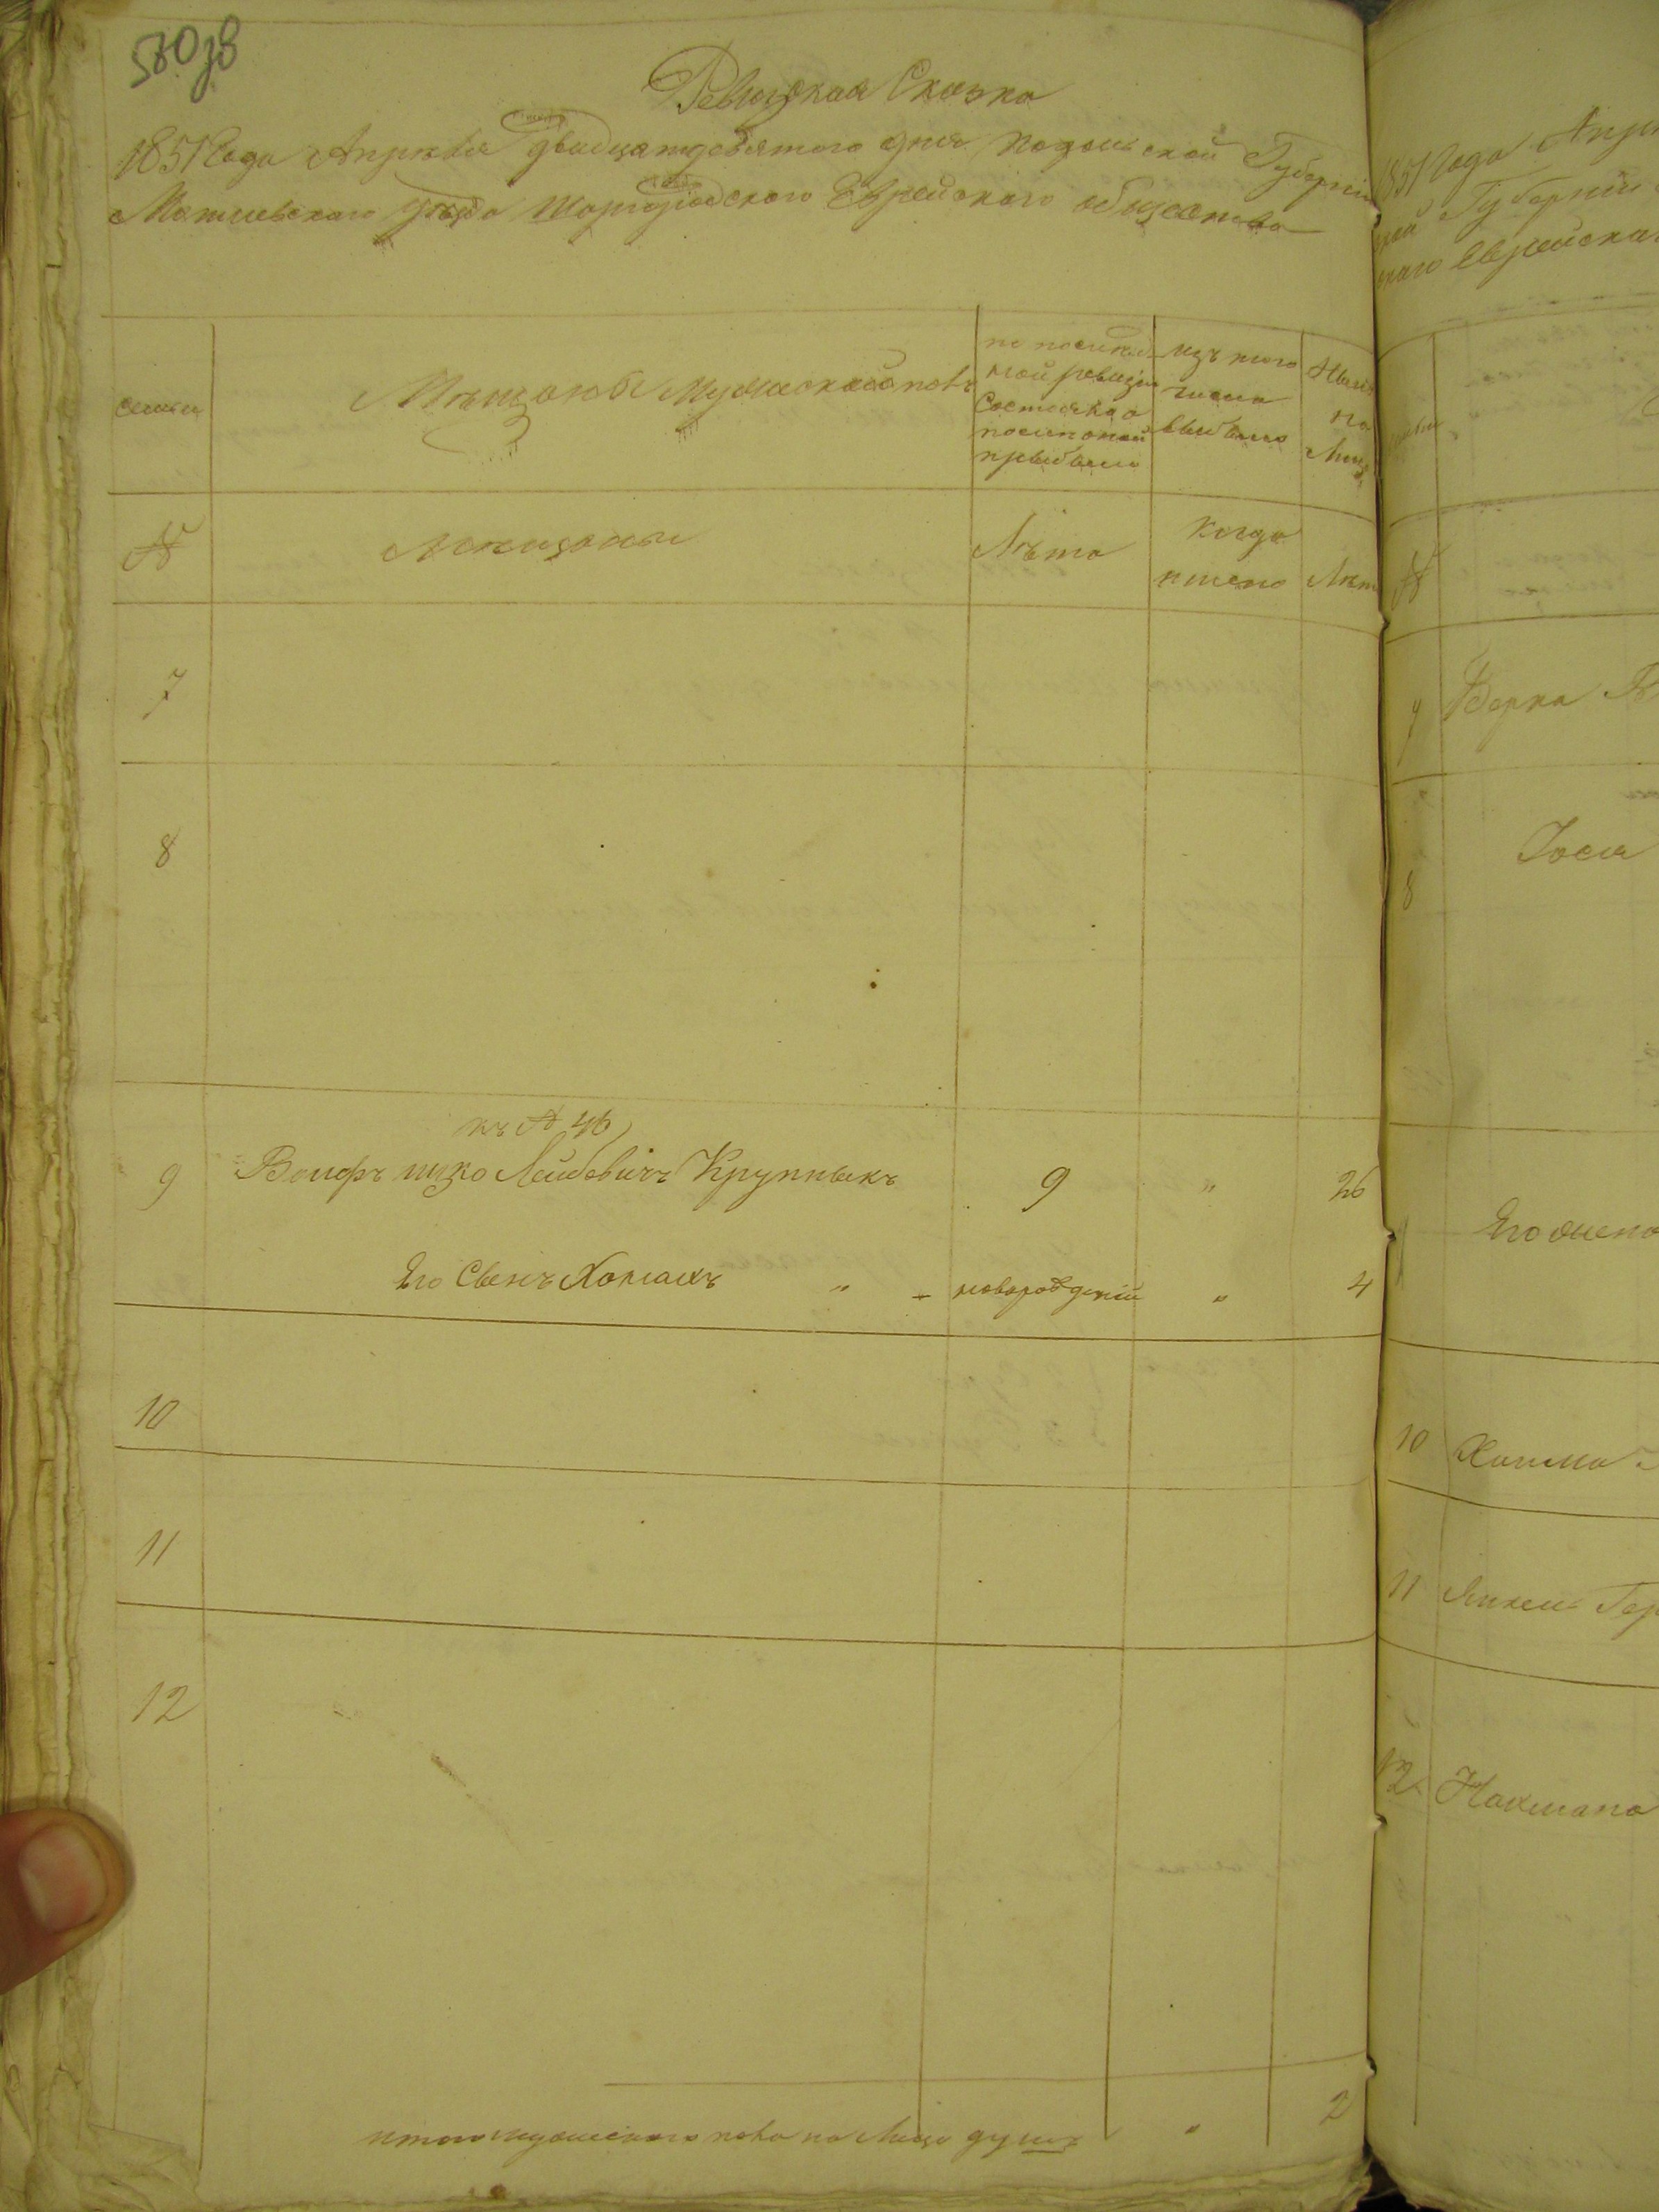 Ревизская Сказка
1851 Года Апреля двадцатдевятого дня Подольской Губерніи
Могилевского уезда Шаргородского Еврейского общества
семьи
Мъщанъ Мужеска полъ
по последней ревизіи Состояло а после оной прибыло
изъ того числа выбыло
Ныне на Лицо
№
Мещаны
Лъта
Когда имено
Лет
7
8
къ № 46
9
Волфъ ицко Лейбовичъ Крупныкъ
9
"
26
Его Сынъ Хаиамъ
"
новорожденій
"
4
10
11
12
итого мужеского пола на Лицо душъ
"
2
1851 Года
Губерніи
Еврейска
№
7
Берка
8
Іося
Его жена
10
11
12
Нахмана